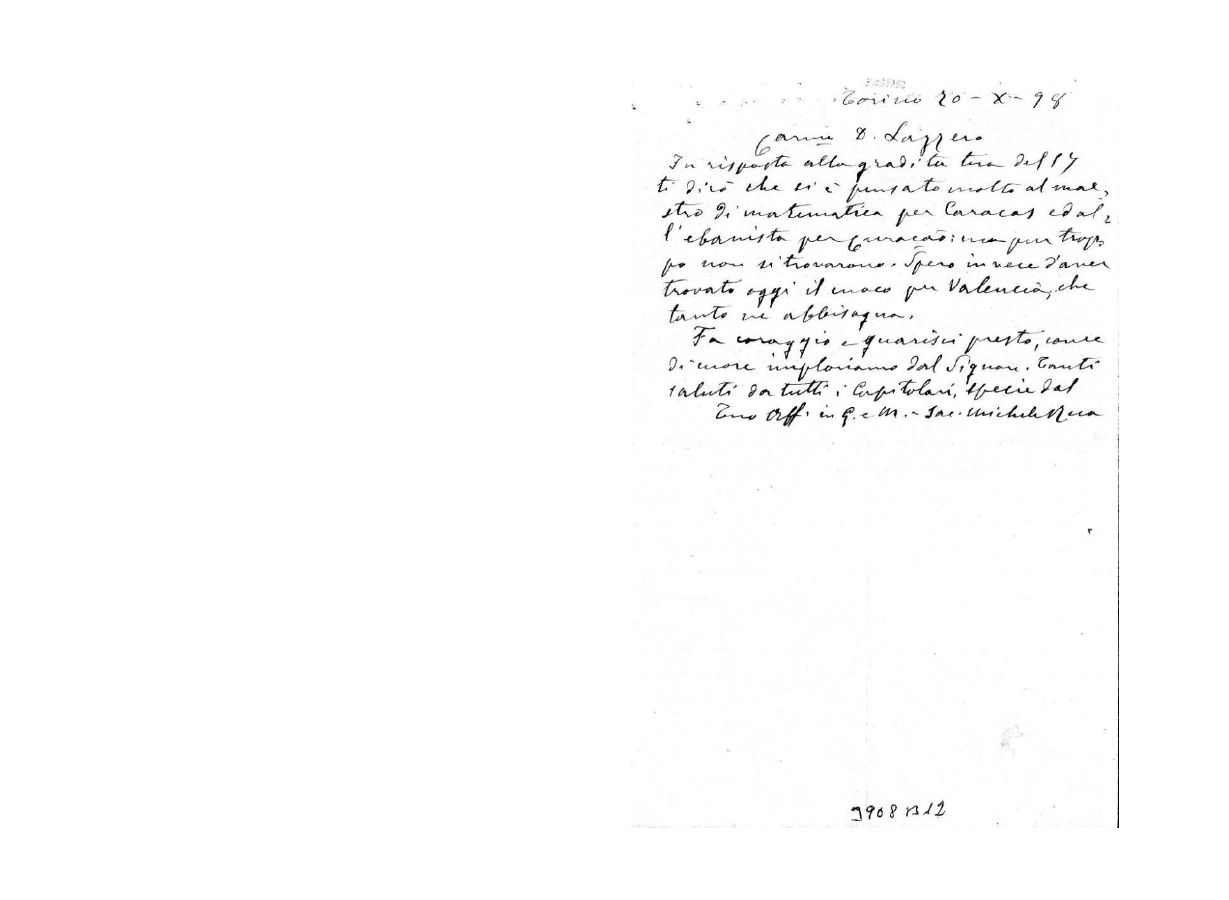 Torino 20-X-98
Carme D. Lazzero
In risposta alla gradita tua del 17
ti dirò che si è pensato molto al mae,
stro di matematica per Caracas ed al,
l'ebanista per Curaçao; ma pur trop,
po non si trovarono. Spero invece d'aver
trovato oggi il cuoco per Valencia, che
tanto ne abbisogna.
Fa coraggio e guarisci presto, come
di cuore imploriamo dal Signore. Tanti
saluti da tutti i Capitolari, specie dal
Tuo Aff. in G. e M. - Sac. Michele Rua
3908 B12